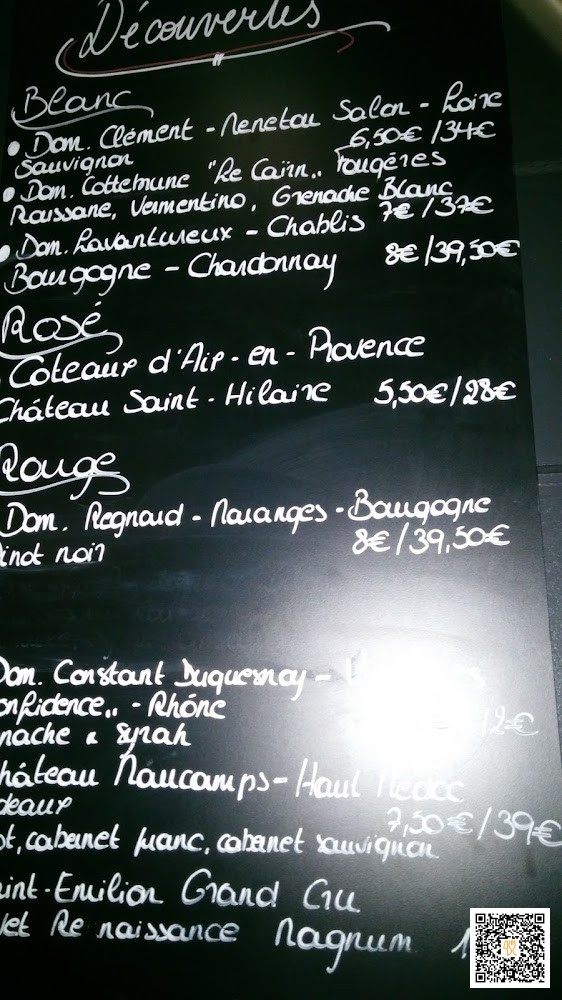 Découvertes
Blanc
• Dom. Clément - Menetou Salon - Loire
Sauvignon 6,50€ / 34€
• Dom. Cottebrune "Le Cairn" Faugères
Roussane, Vermentino, Grenache Blanc
7€ / 37€
• Dom. Lavantureux - Chablis
Bourgogne - Chardonnay 8€ / 39,50€
Rosé
Coteaux d'Aix-en-Provence
Château Saint-Hilaire 5,50€ / 28€
Rouge
Dom. Regnaud - Maranges - Bourgogne
Pinot noir 8€ / 39,50€
Dom. Constant Duquesnoy -
onfidence" - Rhône
nache & Syrah 2€
hâteau Maucamps - Haut Médoc
deaux 7,50€ / 39€
ot, cabernet franc, cabernet sauvignon
int-Emilion Grand Cru
let Renaissance Magnum